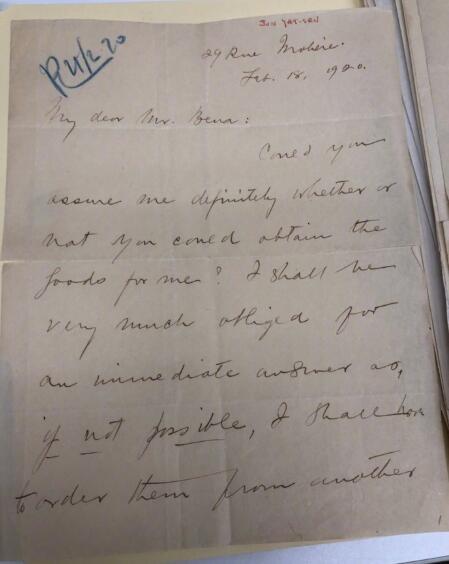 SUN YAT-SEN
29 Rue Molière.
Feb. 18, 1920.
My dear Mr. Bena:
Could you
assure me definitely whether or
not you could obtain the
goods for me? I shall be
very much obliged for
an immediate answer as,
if not possible, I shall have
to order them from another